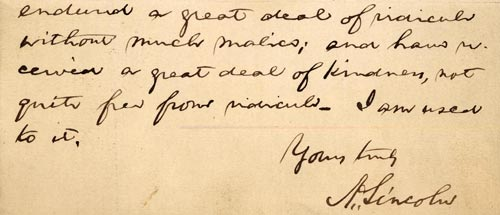 endured a great deal of ridicule
without much malice; and have re-
ceived a great deal of kindness, not
quite free from ridicule- I am used
to it.
Yours truly
A. Lincoln